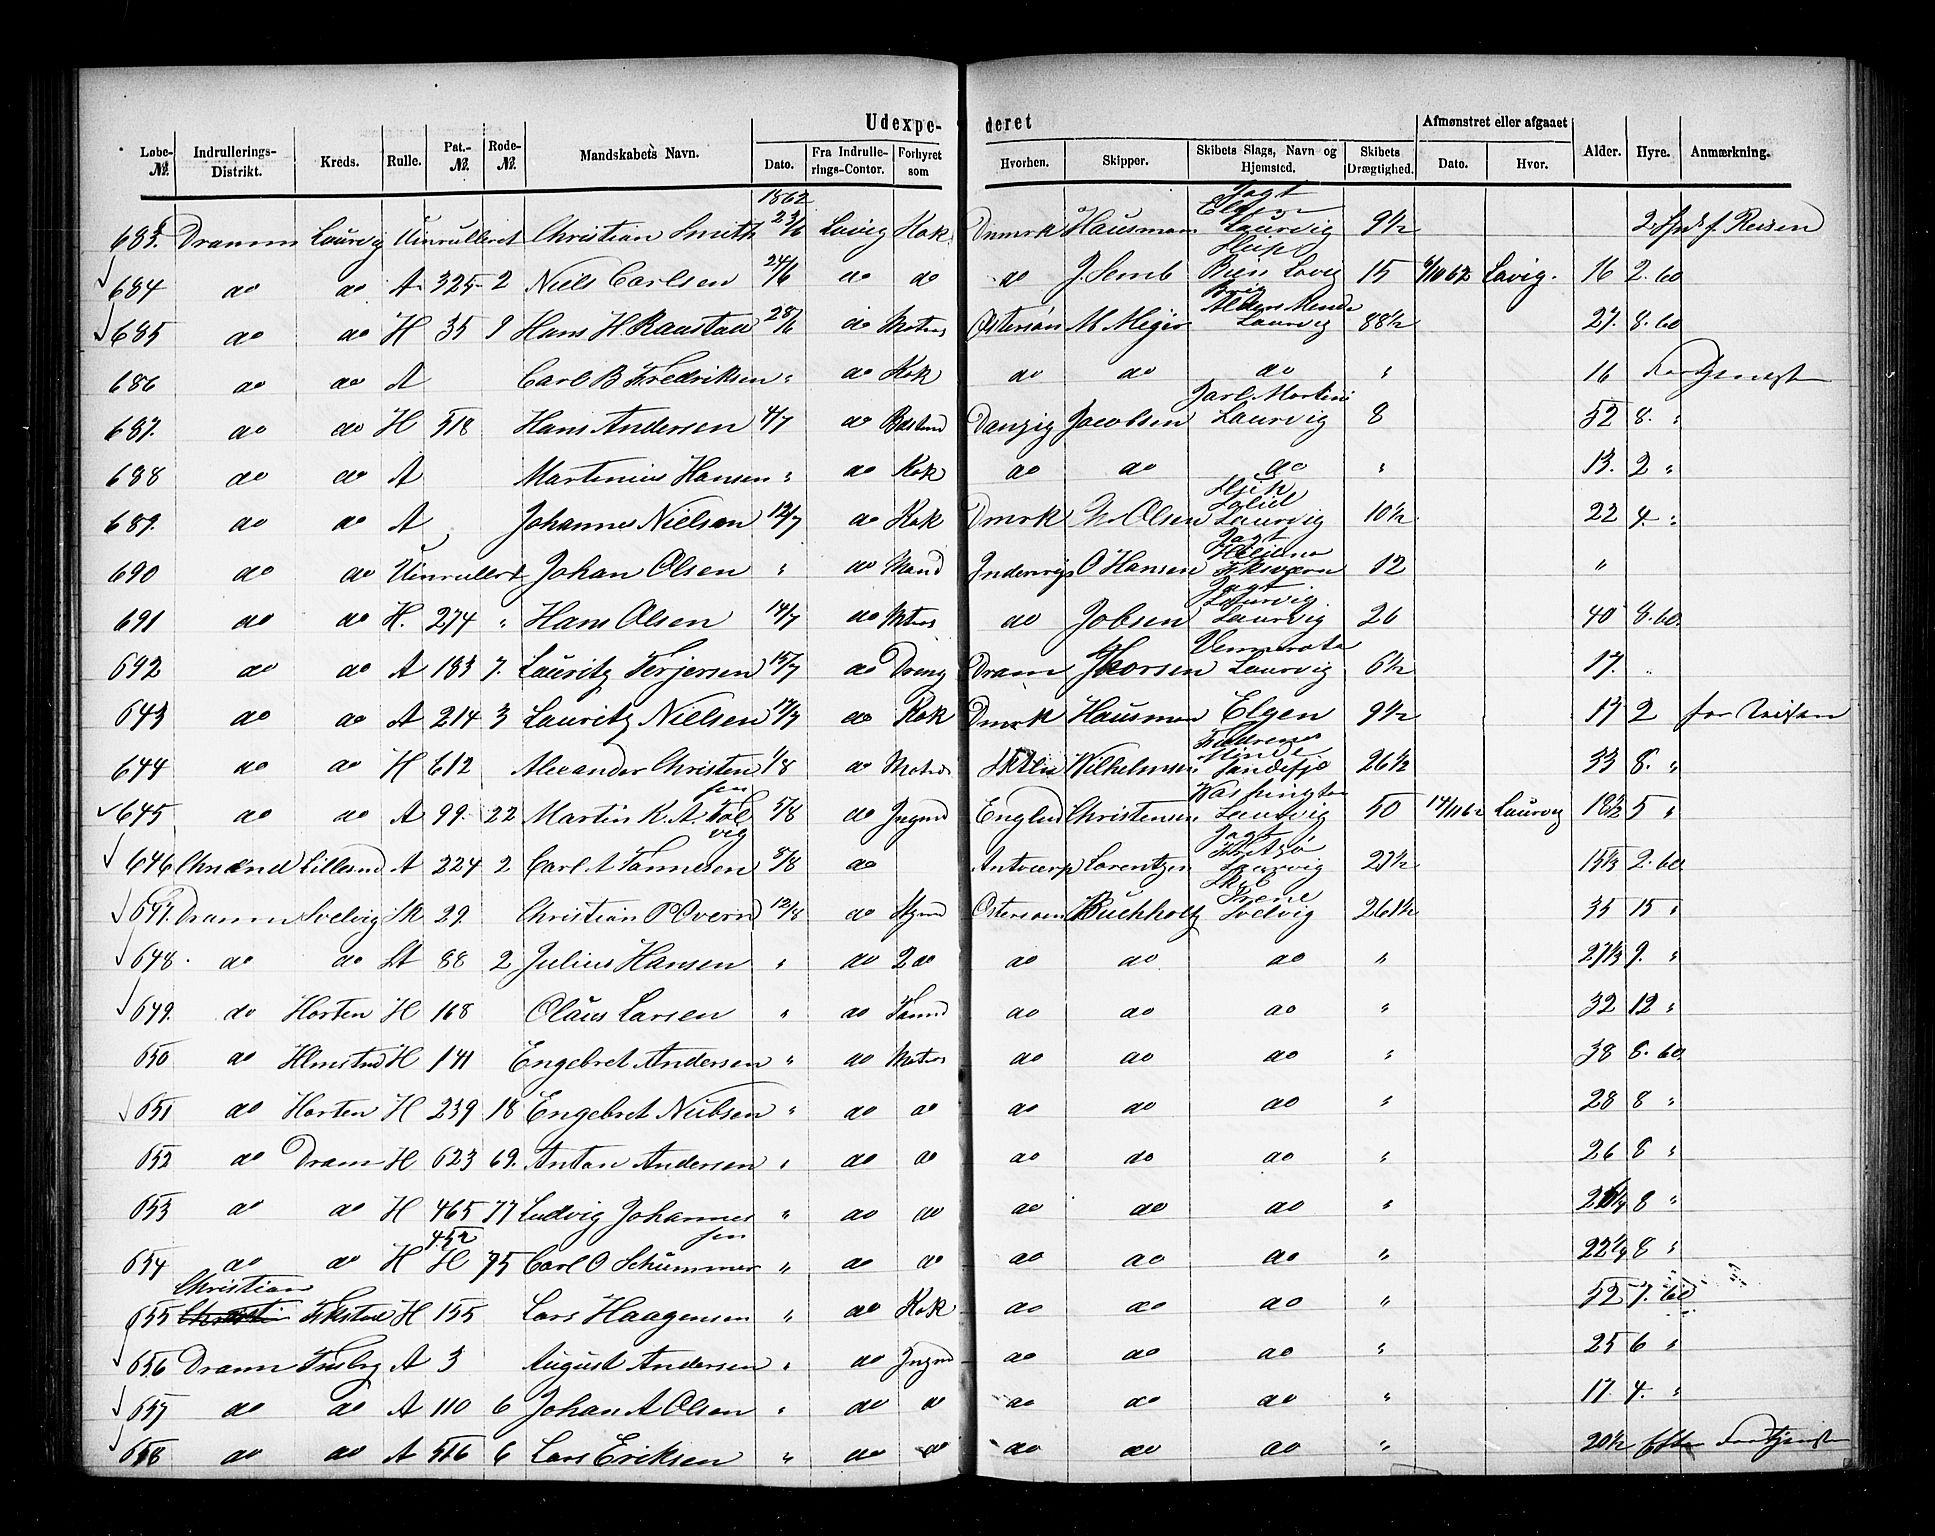 Udexpe- deret
Løbe-№. Indrullerings-Distrikt. Kreds. Rulle. Pat.-№. Rode-№. Mandskabets Navn. Dato. Fra Indrulle-rings-Contor. Forhyret som Hvorhen. Skipper. Skibets Slags, Navn og Hjemsted. Skibets Drægtighed. Afmønstret eller afgaaet Dato. Hvor. Alder. Hyre. Anmærkning.
1862
683. Dramm Laurvig Uinrulleret Christian Smith 23/6 Lavig Kok Dnmrk Hausman Jagt Elgen Laurvig 9½ 2 Spd. f. Reisen
684 do do A 325 2 Niels Carlsen 24/6 do do do J. Semb Bien Lavig 15 6/10 62 Lavig. 16 2. 60
685 do do H 35 9 Hans H Raastad 28/6 do Matros Østersøn M. Meyer Brig Laurvig 88½ 27. 8. 60
686 do do A Carl B Fredriksen " do Kok do do do " 16
687. do do H 518 Hans Andersen 4/7 do Danzig Jacobsen Jarl Laurvig 8 52 8. "
688 do do A Martinius Hansen " do Kok do do do " 13. 2 "
689. do do A Johannes Nielsen 12/7 do Kok Dmrk Olsen Laurvig 10½ 22 4. "
690 do do Uinrullert Johan Olsen " do Mand O Hansen Jagt 12 "
691 do do H. 274 " Hans Olsen 14/7 do Matros do Jobsen Jagt Laurvig Laurvig 26 40 8. 60
692 do do A 183 7. Lauritz Terjersen 15/7 do Dreng Dram Laurvig 6½ 17. "
643 do do A 214 3 Lauritz Nielsen do Kok Dmrk Hausman Elgen 9½ 17 2 for Reisen
644 do do H 612 Alexander Christensen 1/8 do Matros Wilhelmsen Fædrenes Minde Sandefjo 26½ 33 8. "
645 do do A 99. 22 Martin K. A. Tolvig 5/8 do Jngmd Englnd Christensen Washington Laurvig 50 Laurvig 18½ 5 "
646 Lillesnd A 224 2 Carl A Tønnesen 8/8 do Antverp Lorentzen Jagt Laurvig 15½ 2. 60
647. Dramn Svelvig St 29 Christian P Overn 12/8 do Stmd Ostersøen Buchholtz Irene Svelvig 261½ 35 15 "
648. do do St 88 2 Julius Hansen " do 2 do do do do " 27½ 9. "
649. do Horten H 168 Olaus Larsen " do Tømd do do do " 32 12 "
650 do Hlmestnd H 141 Engebret Andersen " do Matros do do do " 38 8. 60
651 do Horten H 239 18 Engebret Nielsen " do do do do do " 28 8 "
652 do Dram H 623 69. Anton Andersen " do do do do do " 26 8 "
653 do do H 465 77 Ludvig Johannessen " do do do do do " 8 "
654 do do H 452 75 Carl O Schummer " do do do do do " 8 "
655 Christian H 155 Lars Haagensen " do Kok do do do " 52 7. 60
656 Dramn Tnsbrg A 3 August Andersen " do Jngmd do do do " 25 6 "
657 do do A 110 6 Johan A Olsen " do do do do do " 17. 4. "
658 do do A 516 6 Lars Eriksen " do do do do do " 20½ Efter Fortjeneste